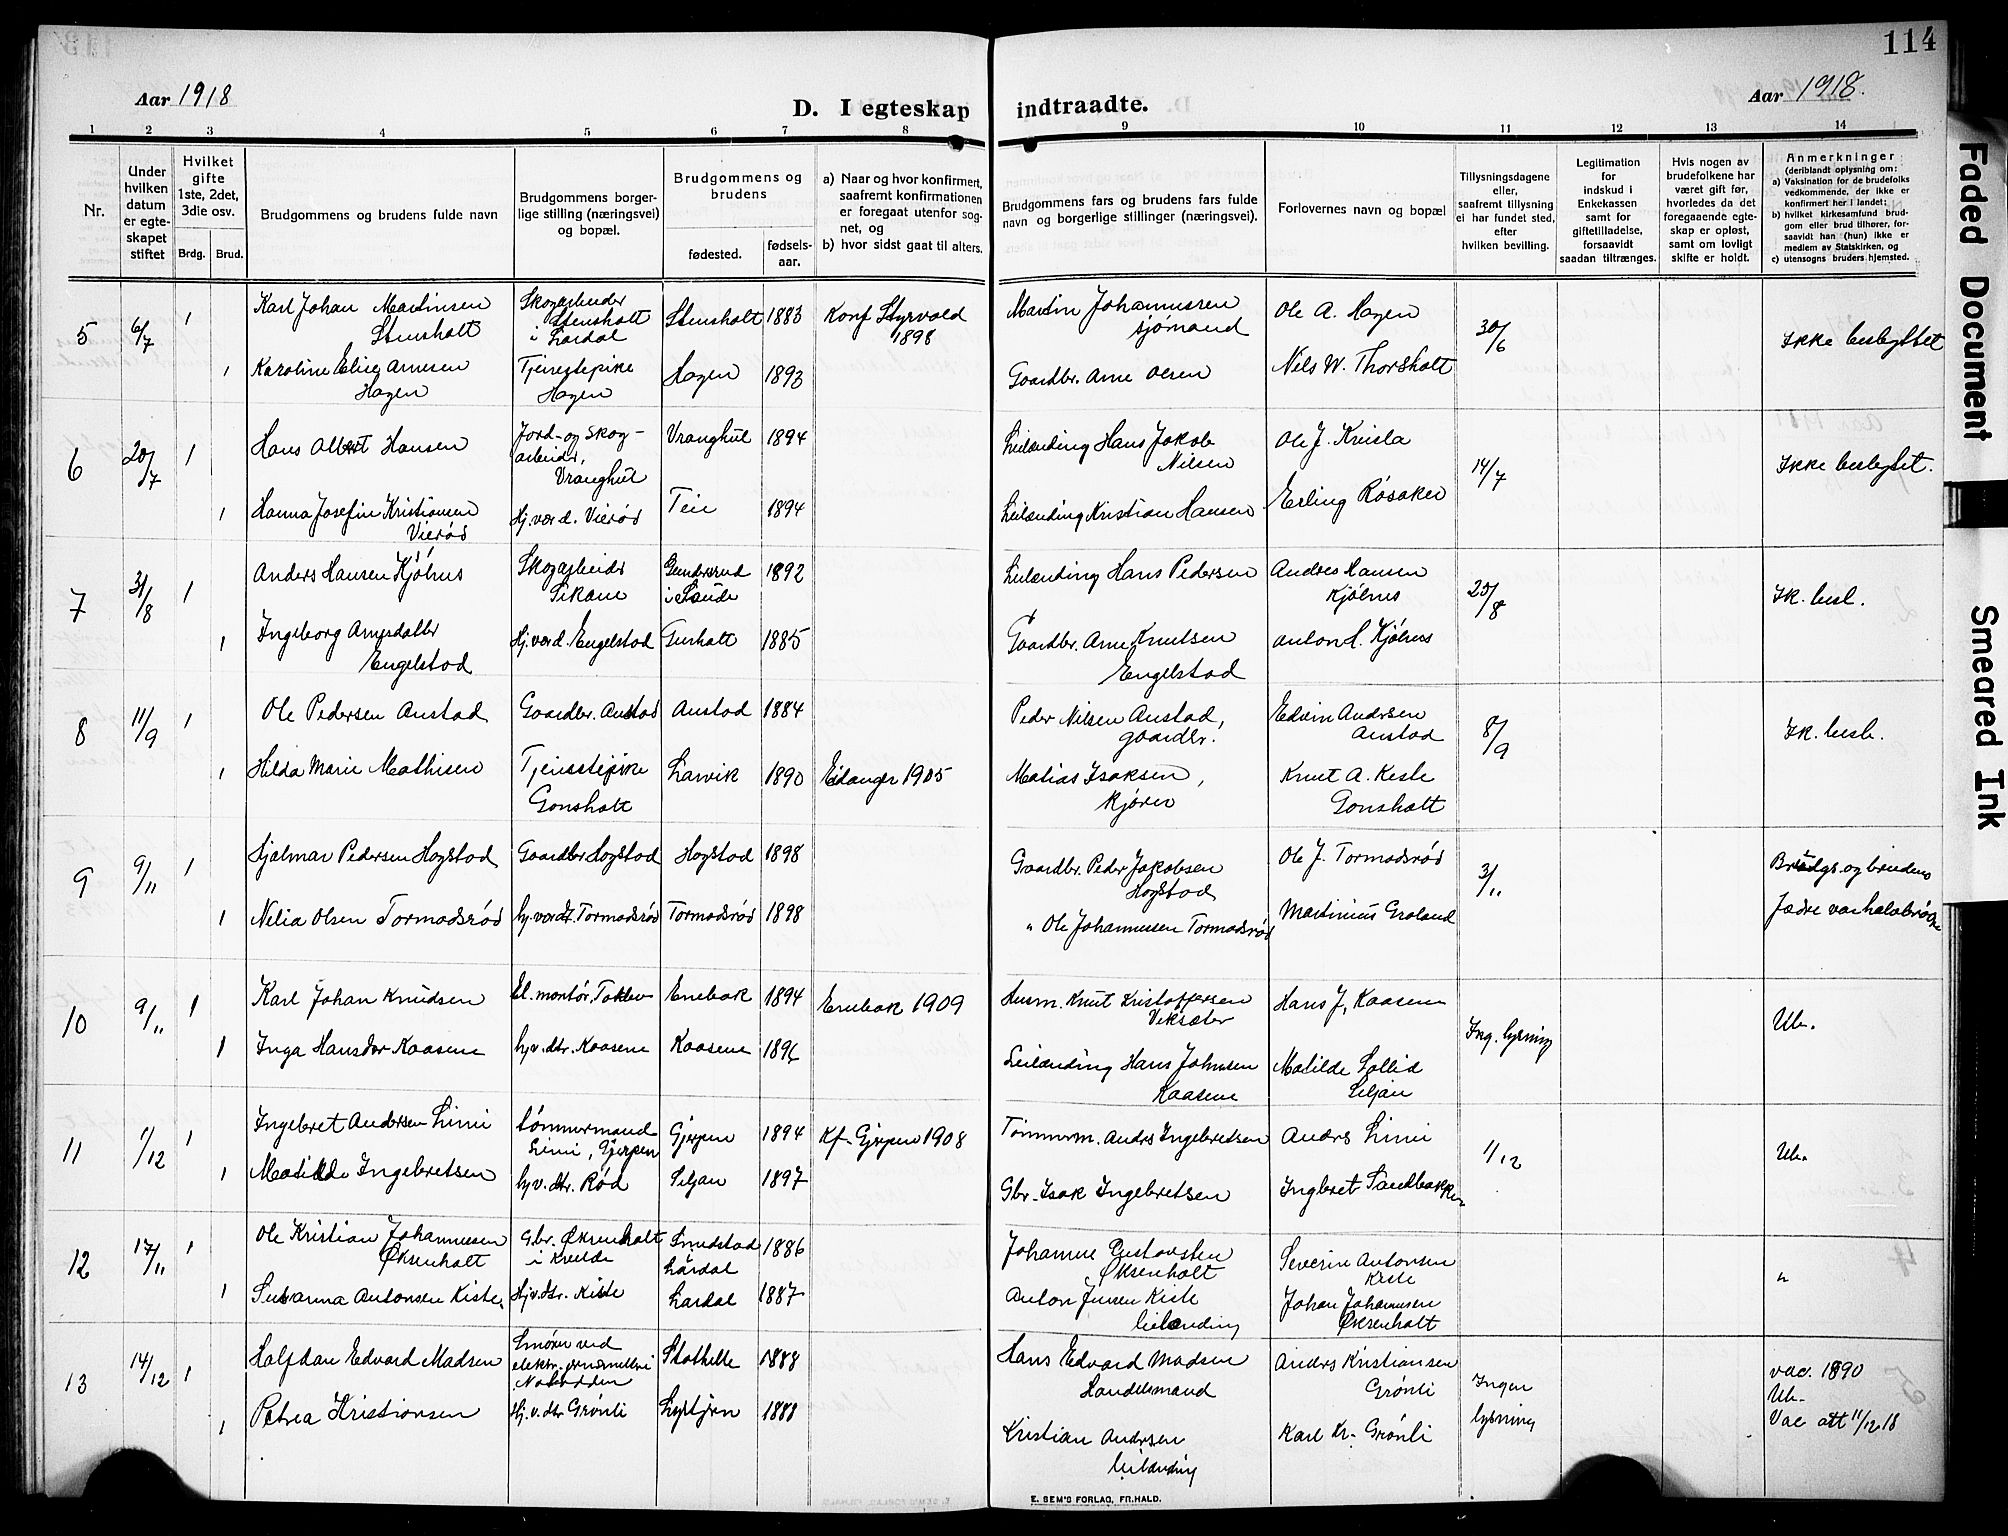 114
Aar 1918
D. I egteskap indtraadte.
Aar 1918.
1 2 3 4 5 6 7 8 9 10 11 12 13 14
Nr.
Under hvilken datum er egteskapet stiftet
Hvilket gifte 1ste, 2det, 3die osv.
Brdg. Brud.
Brudgommens og brudens fulde navn
Brudgommens borgerlige stilling (næringsvei) og bopæl.
Brudgommens og brudens
fødested.
fødselsaar.
a) Naar og hvor konfirmert, saafremt konfirmationen er foregaat utenfor sognet, og
b) hvor sidst gaat til alters.
Brudgommens fars og brudens fars fulde navn og borgerlige stillinger (næringsvei).
Forlovernes navn og bopæl
Tillysningsdagene eller, saafremt tillysning ei har fundet sted, efter hvilken bevilling.
Legitimation for indskud i Enkekassen samt for giftetilladelse, forsaavidt saadan tiltrænges.
Hvis nogen av brudefolkene har været gift før, hvorledes da det foregaaende egteskap er opløst, samt om lovligt skifte er holdt.
Anmerkninger
(deriblandt oplysning om:
a) Vaksination for de brudefolks vedkommende, der ikke er konfirmert her i landet;
b) hvilket kirkesamfund brudgom eller brud tilhører, forsaavidt han (hun) ikke er medlem av Statskirken, og
c) utensogns bruders hjemsted.
5 6/7 1 Karl Johan Martinsen Stensholt Skogarbeider Stensholt i Lardal Stensholt 1883 Konf Styrvold 1898 Martin Johannessen sjømand Ole A. Hagen 30/6 Ikke beslegtet
1 Karoline Elise Arnesen Hagen Tjenestepike Hagen Hagen 1893 Gaardbr. Arne Olsen Nils W. Thorsholt
6 20/7 1 Hans Albert Hansen Jord- og Skogarbeider, Vranghul Vranghul 1894 Leilænding Hans Jakob Nilsen Ole J. Kvisla 14/7 Ikke beslegtet.
1 Hanna Josefin Kristiansen Vierød Hj. værd. Vierød Teie 1894 Leilænding Kristian Hansen Erling Røsaker
7 31/8 1 Anders Hansen Kjølnes Skogarbeider Sikane Gundersrud i Saude 1892 Leilænding Hans Pedersen Andres Hansen Kjølnes 25/8 Ik. besl.
1 Ingeborg Arnesdatter Engelstad Hj. værd. Engelstad Gusholt 1885 Gaardbr. Arne Knutsen Engelstad Anton L. Kjølnes
8 11/9 1 Ole Pedersen Anstad Gaardbr. Anstad Anstad 1884 Peder Nilsen Anstad, gaardbr. Edvin Andersen Anstad 8/9 Ik. besl.
1 Hilda Marie Mathisen Tjenestepike Gonsholt Larvik 1890 Eidanger 1905 Matias Isaksen, kjører Knut A. Kisle Gonsholt
9 9/11 1 Hjalmar Pedersen Hogstad Gaardbr Hogstad Hogstad 1898 Gaardbr. Peder Jakobsen Hogstad Ole J. Tormodsrød 3/11 Brudgs. og brudens
1 Nelia Olsen Tormodsrød hj. værd. Tormodsrød Tormodsrød 1898 " Ole Johannessen Tormodsrød Martinius Groland Fædre var halvbrødre
10 9/11 1 Karl Johan Knudsen El. montør, Toklev Enebak 1894 Enebak 1909 Husm. Knut Kristoffersen Viksæter Hans J. Kaasene Ing. lysning Ub.
1 Inga Hansdtr Kaasene hj. v. dtr. Kaasene Kaasene 1896 Leilænding Hans Johnsen Kaasene Matilde Sollid Siljan
11 1/12 1 Ingebret Andersen Limi tømmermand Limi, Gjerpen Gjerpen 1894 Kf. Gjerpen 1908 Tømmerm. Andrs Ingebretsen Andrs Limi 1/12 Ub.
1 Matilde Ingebretsen hj. v. dtr. Rød Siljan 1897 Gbr. Isak Ingebretsen Ingbret Sandbakken
12 17/11 1 Ole Kristian Johannessen Øksenholt Gbr. Øksenholt i Kvelde Smedstad Lardal 1886 Johannes Gustavsen Øksenholt Severin Antonsen Kiste "
1 Susanna Antonsen Kiste Hj. v. dtr. Kiste Lardal 1887 Anton Jensen Kiste leilænding Johan Johannesen Øksenholt
13 14/12 1 Halfdan Edvard Madsen Smører ved elektr. jernsmelteri Notodden Stathelle 1888 Hans Edvard Madsen Handelsmand Anders Kristiansen Grønli Ingen lysning vac. 1890 Ub.
1 Petrea Kristiansen Hj. v. dtr Grønli Lystjern 1888 Kristian Andersen leilænding Karl Kr. Grønli Vac att 11/12 18
E. SEM'S FORLAG, FR.HALD.
Faded Document
Smeared Ink